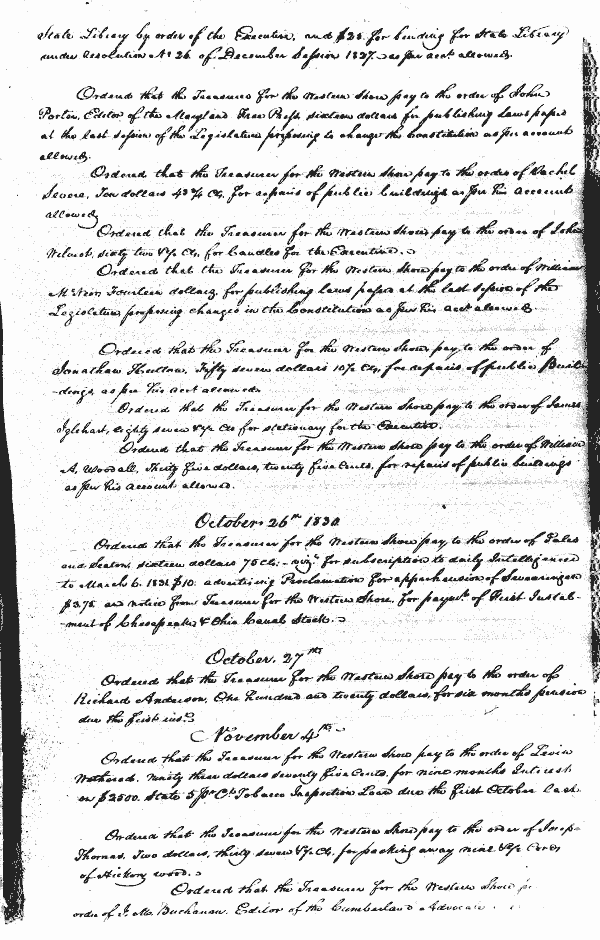 State Library by order of the Executive, and $28 for binding for State Library
under resolution No 26 of December Session 1827. as per acct allowed.
Ordered that the Treasurer for the Western Shore pay to the order of John
Porter, Editor of the Maryland Free Press, sixteen dollars for publishing Laws passed
at the last session of the Legislature proposing to change the Constitution as per account
allowed.
Ordered that the Treasurer for the Western Shore pay to the order of Rachel
Severe, Ten dollars 43 3/4 Cts, for repairs of public buildings as per his account
allowed
Ordered that the Treasurer for the Western Shore pay to the order of John
Wilmot, sixty two 1/2 Cts for Candles for the Executive.
Ordered that the Treasurer for the Western Shore pay to the order of William
McNeir Fourteen dollars, for publishing laws passed at the last session of the
Legislature proposing changes in the Constitution as per his acct allowed
Ordered that the Treasurer for the Western Shore pay to the order of
Jonathan Fifty seven dollars Cts, for repairs of public Buil
-dings, as per his acct allowed.
Ordered that the Treasurer for the Western Shore pay to the order of James
Iglehart, eighty seven 1/2 Cts for stationary for the Executive.
Ordered that the Treasurer for the Western Shore pay to the order of William
A. Woodall, Thirty five dollars, twenty five Cents, for repairs of public buildings
as per his account allowed.
October 26th 1830
Ordered that the Treasurer for the Western Shore pay to the order of Gales
and Seaton, sixteen dollars 75 Cts; viz: for subscription to daily Intelligencer
to March 6. 1831 $10: advertising Proclamation for apprehension of
$3.75 and notice from Treasurer for the Western Shore, for paymt of First Instal-
-ment of Chesapeake & Ohio Canal Stock.
October. 27th
Ordered that the Treasurer for the Western Shore pay to the order of
Richard Anderson, One hundred and twenty dollars, for six months pension
due the first inst.
November 4th
Ordered that the Treasurer for the Western Shore pay to the order of Levin
Wethered. ninety three dollars seventy five Cents, for nine months Interest
on $2500. State 5 pr Ct Tobacco Inspection Loan due the first October last
Ordered that the Treasurer for the Western Shore pay to the order of
Thomas, Two dollars, thirty seven 1/2 Cts, for packing away nine 1/2 Cords
of Hickory wood.
Ordered that the Treasurer for the Western Shore
order of J. M. Buchanan. Editor of the Cumberland Advocate